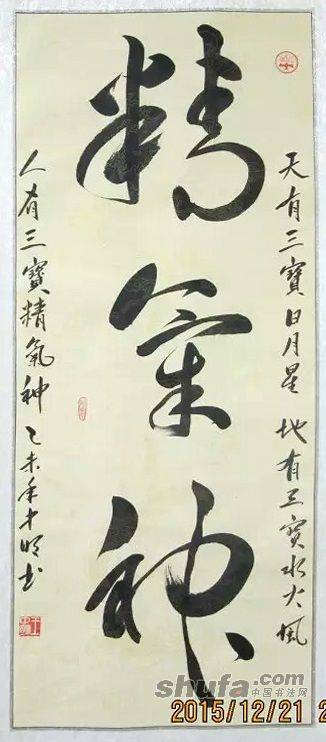 精氣神
天有三寶日月星 地有三寶水火風
人有三寶精氣神 乙未年才明书
shufa.com
中国书法网
2015/12/21 2